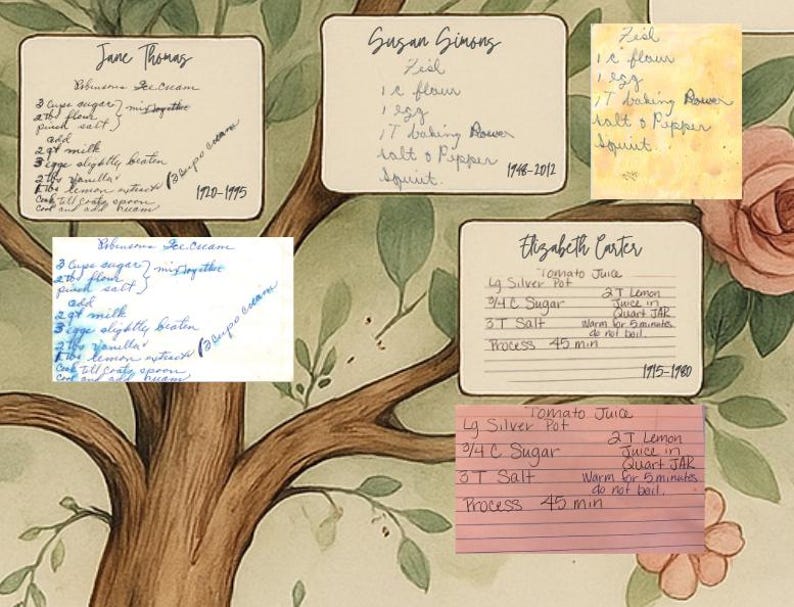 Jane Thomas
Robinsons Ice Cream
3 Cups sugar
2 tbs flour } mix together
pinch salt
add
2 qt milk
3 eggs slightly beaten
2 tbs vanilla
1 tbs lemon extract
(3 cups cream
Cook till coats spoon
Cool and add cream
1920-1995
Susan Simons
1 c flour
1 egg
1T baking Power
salt & Pepper
Squirt.
1948-2012
1 c flour
1 egg
1T baking Power
salt & Pepper
Squirt.
Robinsons Ice Cream
3 Cups sugar
2 tbs flour } mix together
pinch salt
add
2 qt milk
3 eggs slightly beaten
2 tbs vanilla
1 tbs lemon extract
(3 cups cream
Cook till coats spoon
Cool and add cream
Elizabeth Carter
Tomato Juice
Lg Silver Pot
3/4 C Sugar
3 T Salt
2 T Lemon
Juice in
Quart JAR
Warm for 5 minutes
do not boil.
Process 45 min
1915-1980
Tomato Juice
Lg Silver Pot
3/4 C Sugar
3 T Salt
2 T Lemon
Juice in
Quart JAR
Warm for 5 minutes
do not boil.
Process 45 min